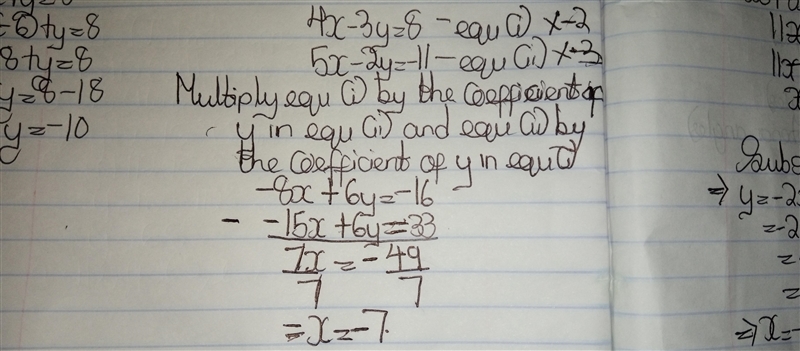 8+y=8
y=8-18
y=-10
4x-3y=8 - equ (i) x-2
5x-2y=-11 - equ (ii) x-3
Multiply equ (i) by the coefficient of
y in equ (ii) and equ (ii) by
the coefficient of y in equ (i)
-8x+6y=-16
- -15x+6y=33
7x = -49
7 7
= x=-7.
11x
11x
Subs
⇒ y=-2
=-2
=
=
⇒ x=-